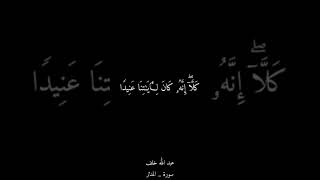 كَلَّآ ۖ إِنَّهُۥ كَانَ لِـَٔايَـٰتِنَا عَنِيدًا
كَلَّآ ۖ إِنَّهُۥ
تِنَا عَنِيدًا
عبد الله خلف
سورة _ المدثر